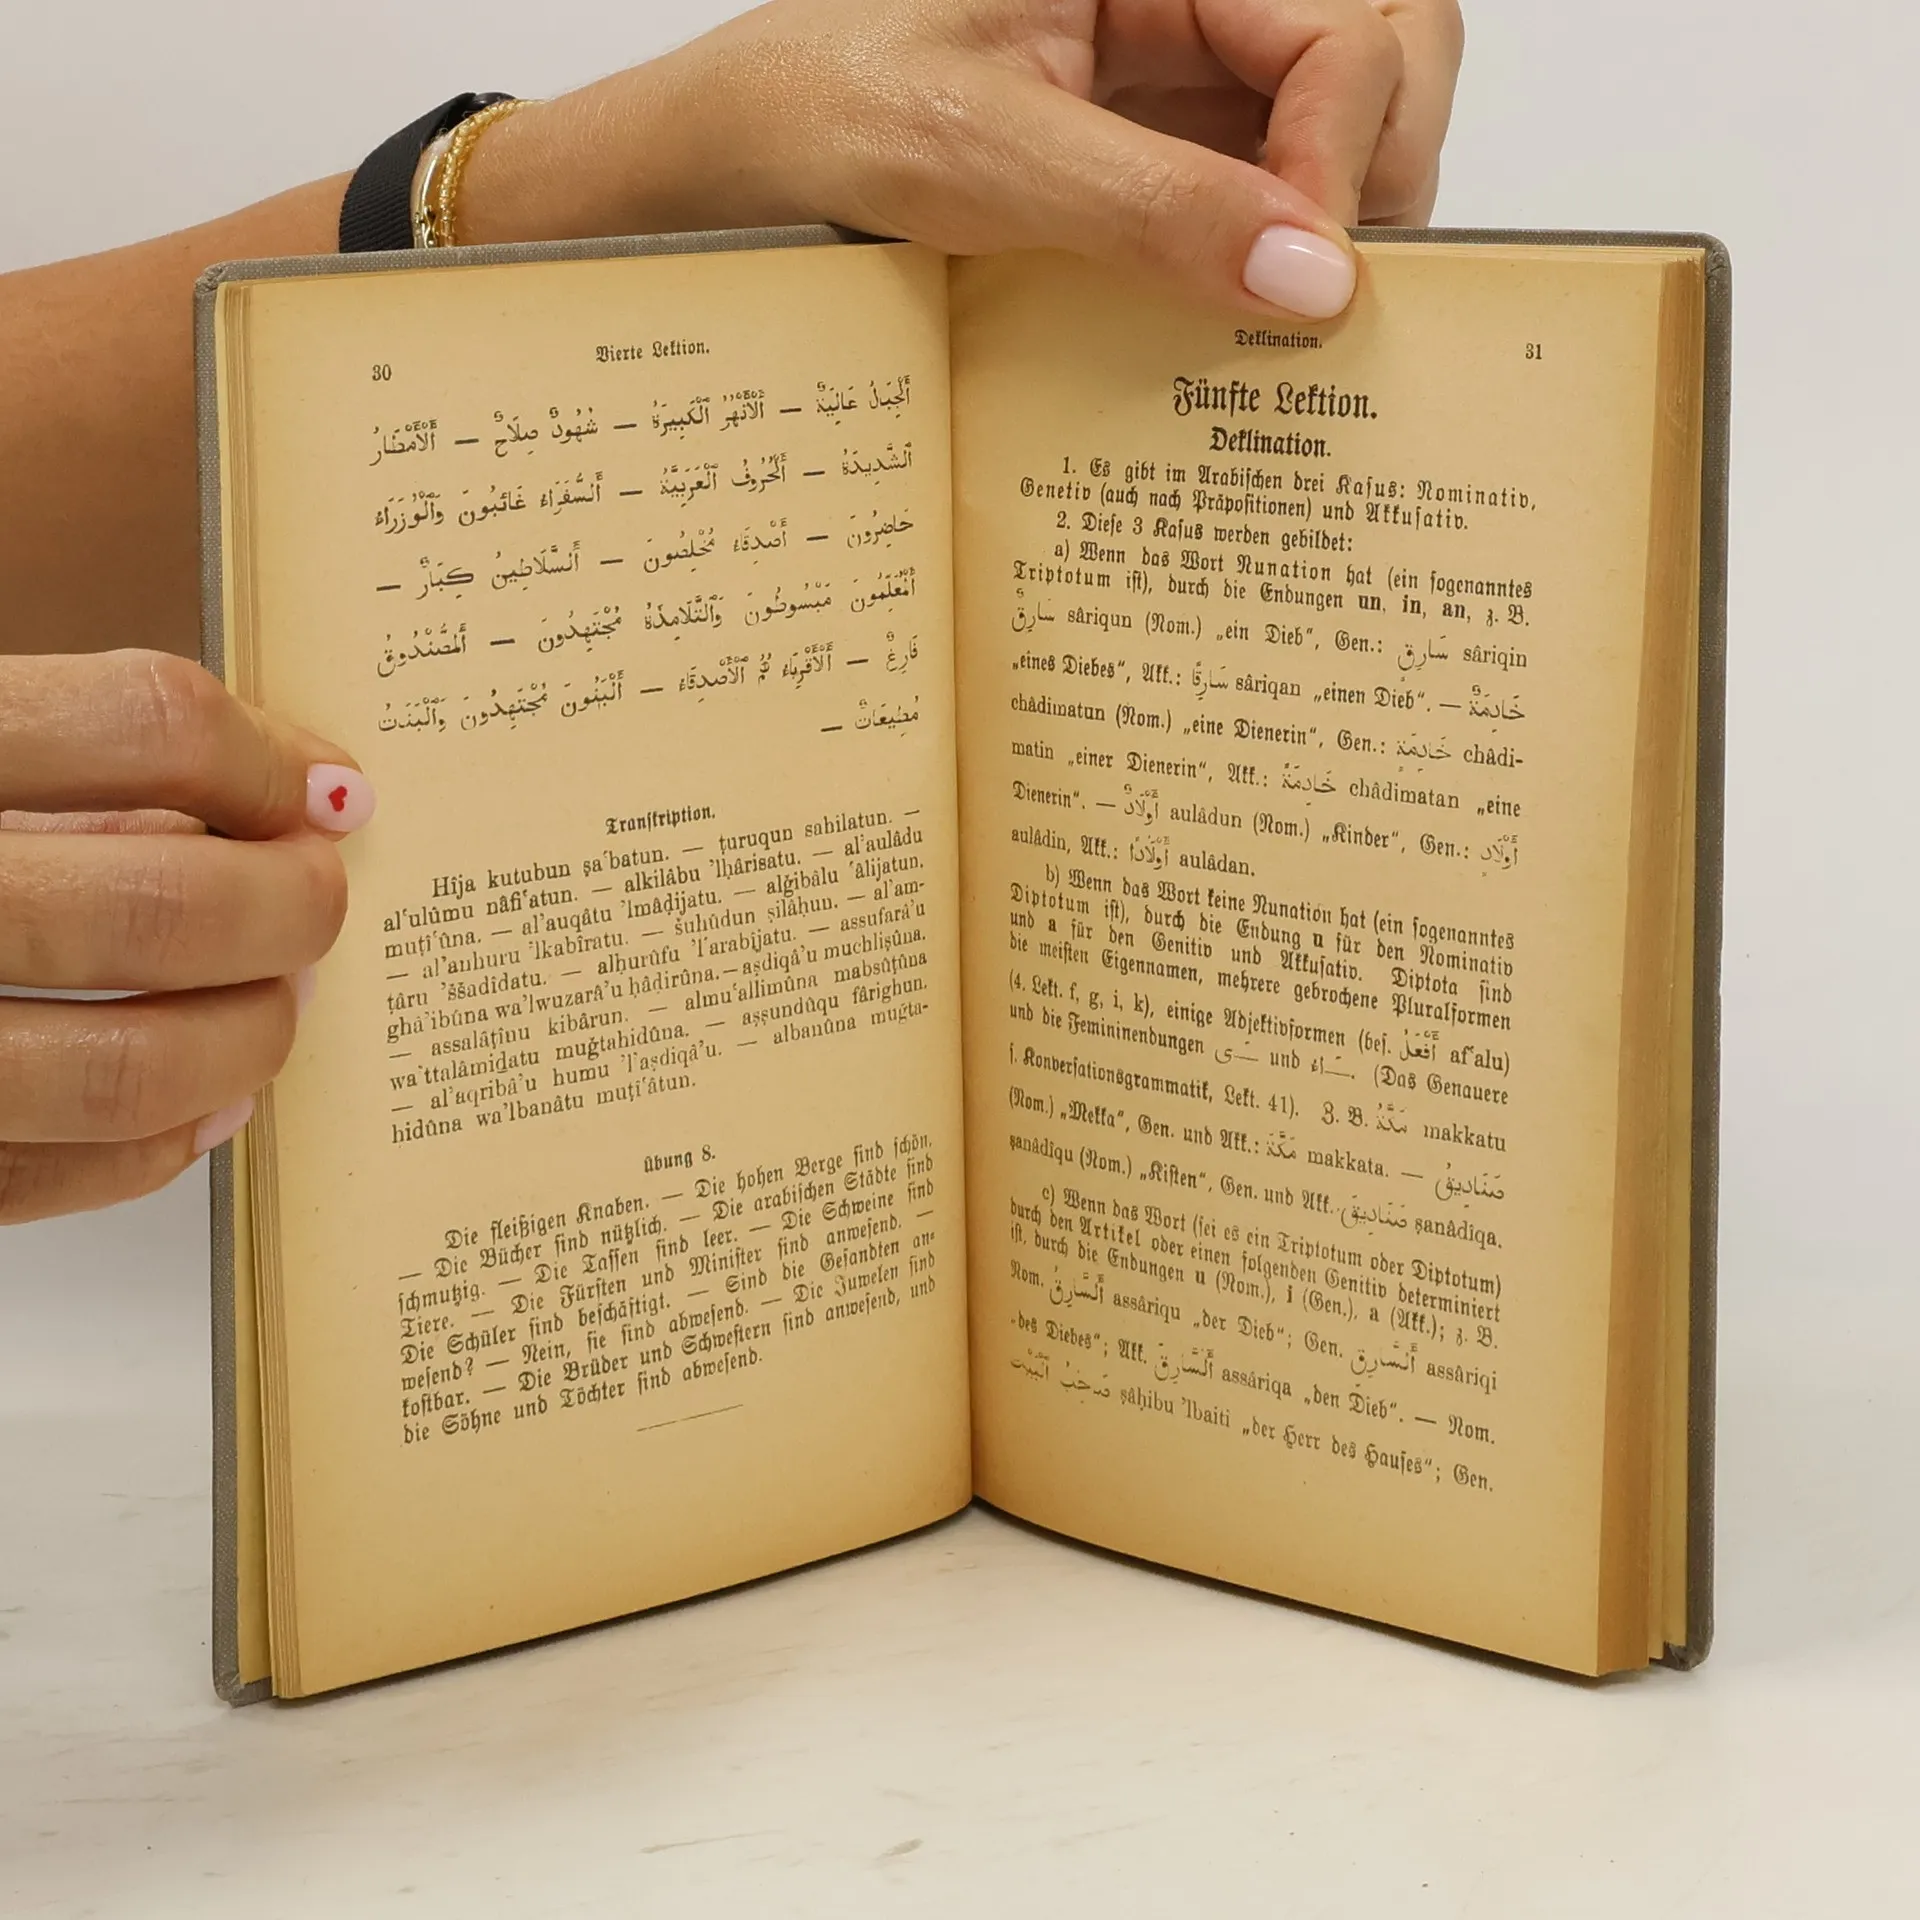 30
Vierte Lektion.
أَلْجِبَالُ عَالِيَةٌ — اَلْأَنْهُرُ ٱلْكَبِيرَةُ — شُهُودٌ صِلَاحٌ — اَلْأَمْطَارُ
ٱلشَّدِيدَةُ — أَلْحُرُوفُ ٱلْعَرَبِيَّةُ — أَلسُّفَرَاءُ غَائِبُونَ وَٱلْوُزَرَاءُ
حَاضِرُونَ — أَصْدِقَاءُ مُخْلِصُونَ — أَلسَّلَاطِينُ كِبَارٌ —
أَلْمُعَلِّمُونَ مَبْسُوطُونَ وَٱلتَّلَامِذَةُ مُجْتَهِدُونَ — أَلصُّنْدُوقُ
فَارِغٌ — أَلْأَقْرِبَاءُ هُمُ ٱلْأَصْدِقَاءُ — أَلْبَنُونَ مُجْتَهِدُونَ وَٱلْبَنَتُ
مُطِيعَاتٌ —
Transkription.
Hîja kutubun ṣaʿbatun. — ṭuruqun sahilatun. —
alʿulûmu nâfiʿatun. — alkilâbu ’lḥârisatu. — al’aulâdu
muṭîʿûna. — al’auqâtu ’lmâḍijatu. — alǧibâlu ʿâlijatun.
— al’anhuru ’lkabîratu. — šuhûdun ṣilâḥun. — al’am-
ṭâru ’ššadîdatu. — alḥurûfu ’lʿarabîjatu. — assufarâ’u
ghâ’ibûna wa’lwuzarâ’u ḥâḍirûna. — aṣdiqâ’u muchliṣûna.
— assalâṭînu kibârun. — almuʿallimûna mabsûṭûna
wa’ttalâmiḏatu muǧtahidûna. — aṣṣundûqu fârighun.
— al’aqribâ’u humu ’l’aṣdiqâ’u. — albanûna muǧta-
hidûna wa’lbanâtu muṭîʿâtun.
Übung 8.
Die fleißigen Knaben. — Die hohen Berge sind schön.
— Die Bücher sind nützlich. — Die arabischen Städte sind
schmutzig. — Die Tassen sind leer. — Die Schweine sind
Tiere. — Die Fürsten und Minister sind anwesend. —
Die Schüler sind beschäftigt. — Sind die Gesandten an-
wesend? — Nein, sie sind abwesend. — Die Juwelen sind
kostbar. — Die Brüder und Schwestern sind anwesend, und
die Söhne und Töchter sind abwesend.
Deklination.
31
Fünfte Lektion.
Deklination.
1. Es gibt im Arabischen drei Kasus: Nominativ,
Genetiv (auch nach Präpositionen) und Akkusativ.
2. Diese 3 Kasus werden gebildet:
a) Wenn das Wort Nunation hat (ein sogenanntes
Triptotum ist), durch die Endungen un, in, an, z. B.
سَارِقٌ sâriqun (Nom.) „ein Dieb“, Gen.: سَارِقٍ sâriqin
„eines Diebes“, Akk.: سَارِقًا sâriqan „einen Dieb“. — خَادِمَةٌ
châdimatun (Nom.) „eine Dienerin“, Gen.: خَادِمَةٍ châdi-
matin „einer Dienerin“, Akk.: خَادِمَةً châdimatan „eine
Dienerin“. — أَوْلَادٌ aulâdun (Nom.) „Kinder“, Gen.: أَوْلَادٍ
aulâdin, Akk.: أَوْلَادًا aulâdan.
b) Wenn das Wort keine Nunation hat (ein sogenanntes
Diptotum ist), durch die Endung u für den Nominativ
und a für den Genitiv und Akkusativ. Diptota sind
die meisten Eigennamen, mehrere gebrochene Pluralformen
(4. Lekt. f, g, i, k), einige Adjektivformen (bes. أَفْعَلُ afʿalu)
und die Femininendungen ـَى und ـَاءُ. (Das Genauere
s. Konversationsgrammatik, Lekt. 41). Z. B. مَكَّةُ makkatu
(Nom.) „Mekka“, Gen. und Akk.: مَكَّةَ makkata. — صَنَادِيقُ
ṣanâdîqu (Nom.) „Kisten“, Gen. und Akk. صَنَادِيقَ ṣanâdîqa.
c) Wenn das Wort (sei es ein Triptotum oder Diptotum)
durch den Artikel oder einen folgenden Genitiv determiniert
ist, durch die Endungen u (Nom.), i (Gen.), a (Akk.); z. B.
Nom. أَلسَّارِقُ assâriqu „der Dieb“; Gen. أَلسَّارِقِ assâriqi
„des Diebes“; Akk. أَلسَّارِقَ assâriqa „den Dieb“. — Nom.
صَاحِبُ ٱلْبَيْتِ ṣâḥibu ’lbaiti „der Herr des Hauses“; Gen.